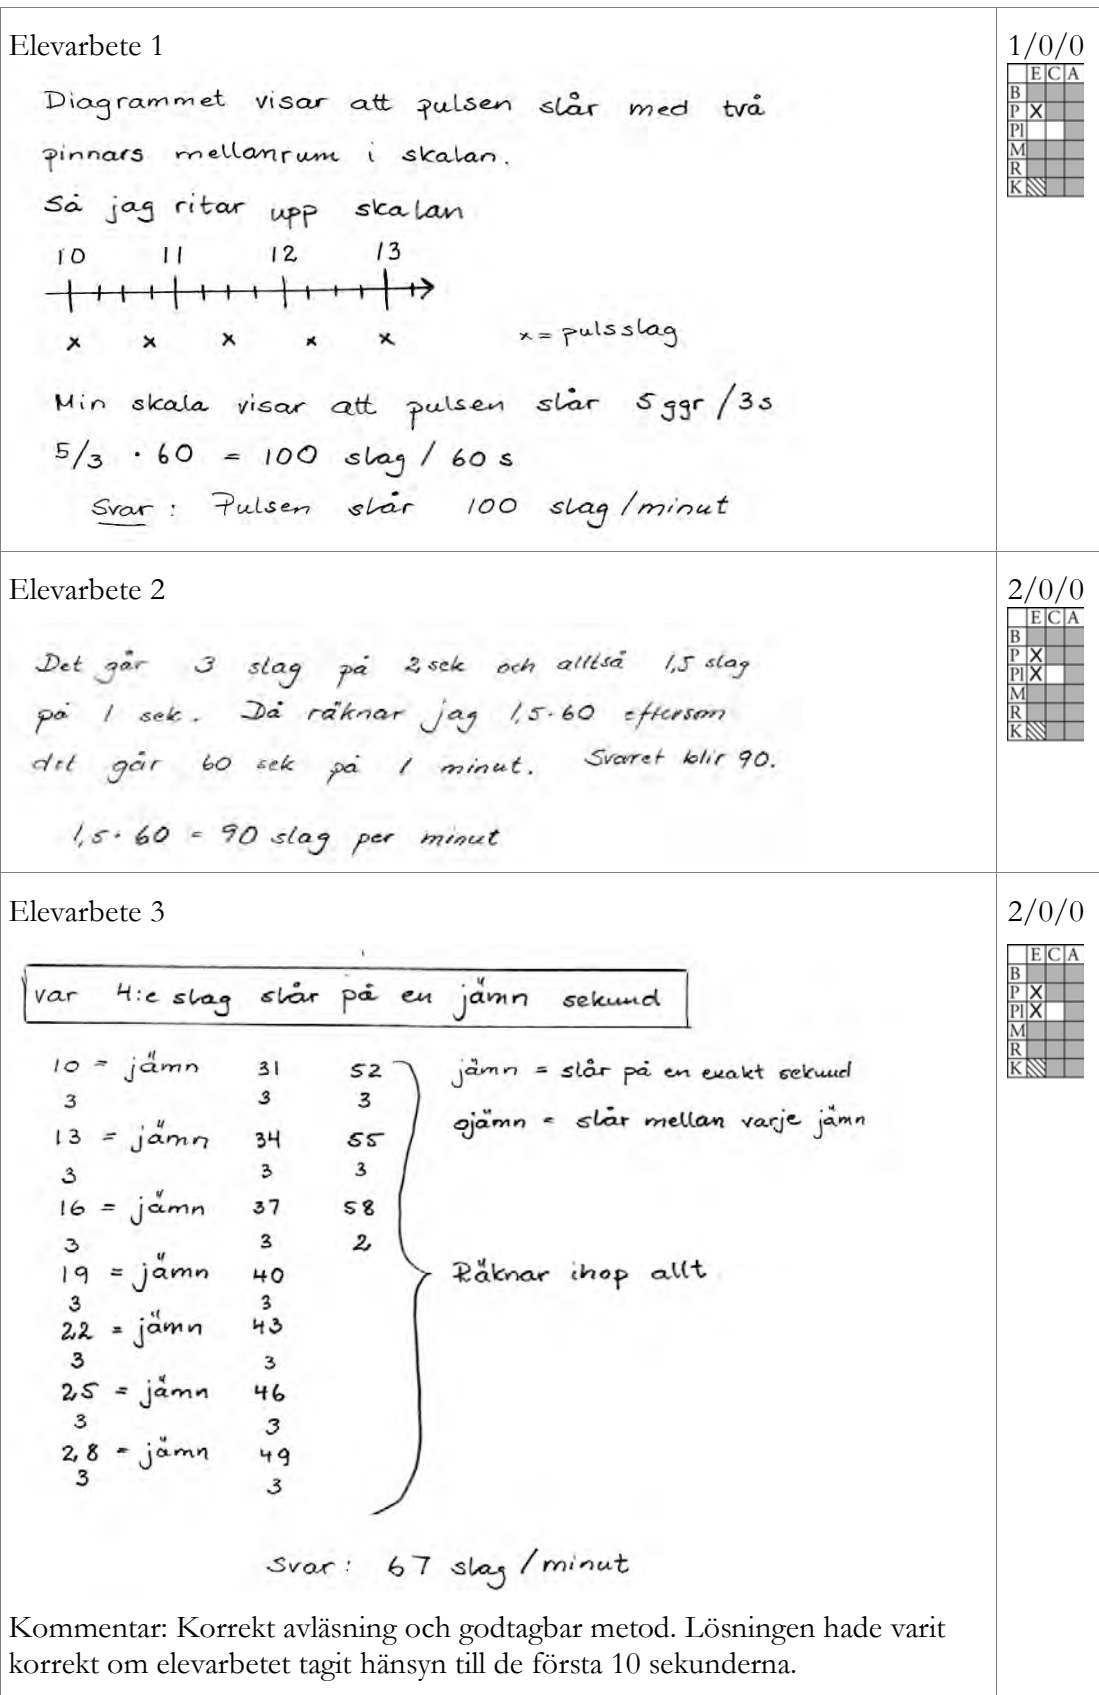 Elevarbete 1
1/0/0
E C A
B
P X
Pl
M
R
K
Diagrammet visar att pulsen slår med två
pinnars mellanrum i skalan.
Så jag ritar upp skalan
10 11 12 13
x x x x x x = pulsslag
Min skala visar att pulsen slår 5 ggr / 3 s
5/3 · 60 = 100 slag / 60 s
Svar : Pulsen slår 100 slag / minut
Elevarbete 2
2/0/0
E C A
B
P X
Pl X
M
R
K
Det går 3 slag på 2 sek och alltså 1,5 slag
på 1 sek. Då räknar jag 1,5·60 eftersom
det går 60 sek på 1 minut. Svaret blir 90.
1,5·60 = 90 slag per minut
Elevarbete 3
2/0/0
E C A
B
P X
Pl X
M
R
K
var 4:e slag slår på en jämn sekund
10 = jämn 31 52
3 3 3
13 = jämn 34 55
3 3 3
16 = jämn 37 58
3 3 2
19 = jämn 40
3 3
22 = jämn 43
3 3
25 = jämn 46
3 3
28 = jämn 49
3 3
jämn = slår på en exakt sekund
ojämn = slår mellan varje jämn
Räknar ihop allt
Svar: 67 slag / minut
Kommentar: Korrekt avläsning och godtagbar metod. Lösningen hade varit
korrekt om elevarbetet tagit hänsyn till de första 10 sekunderna.